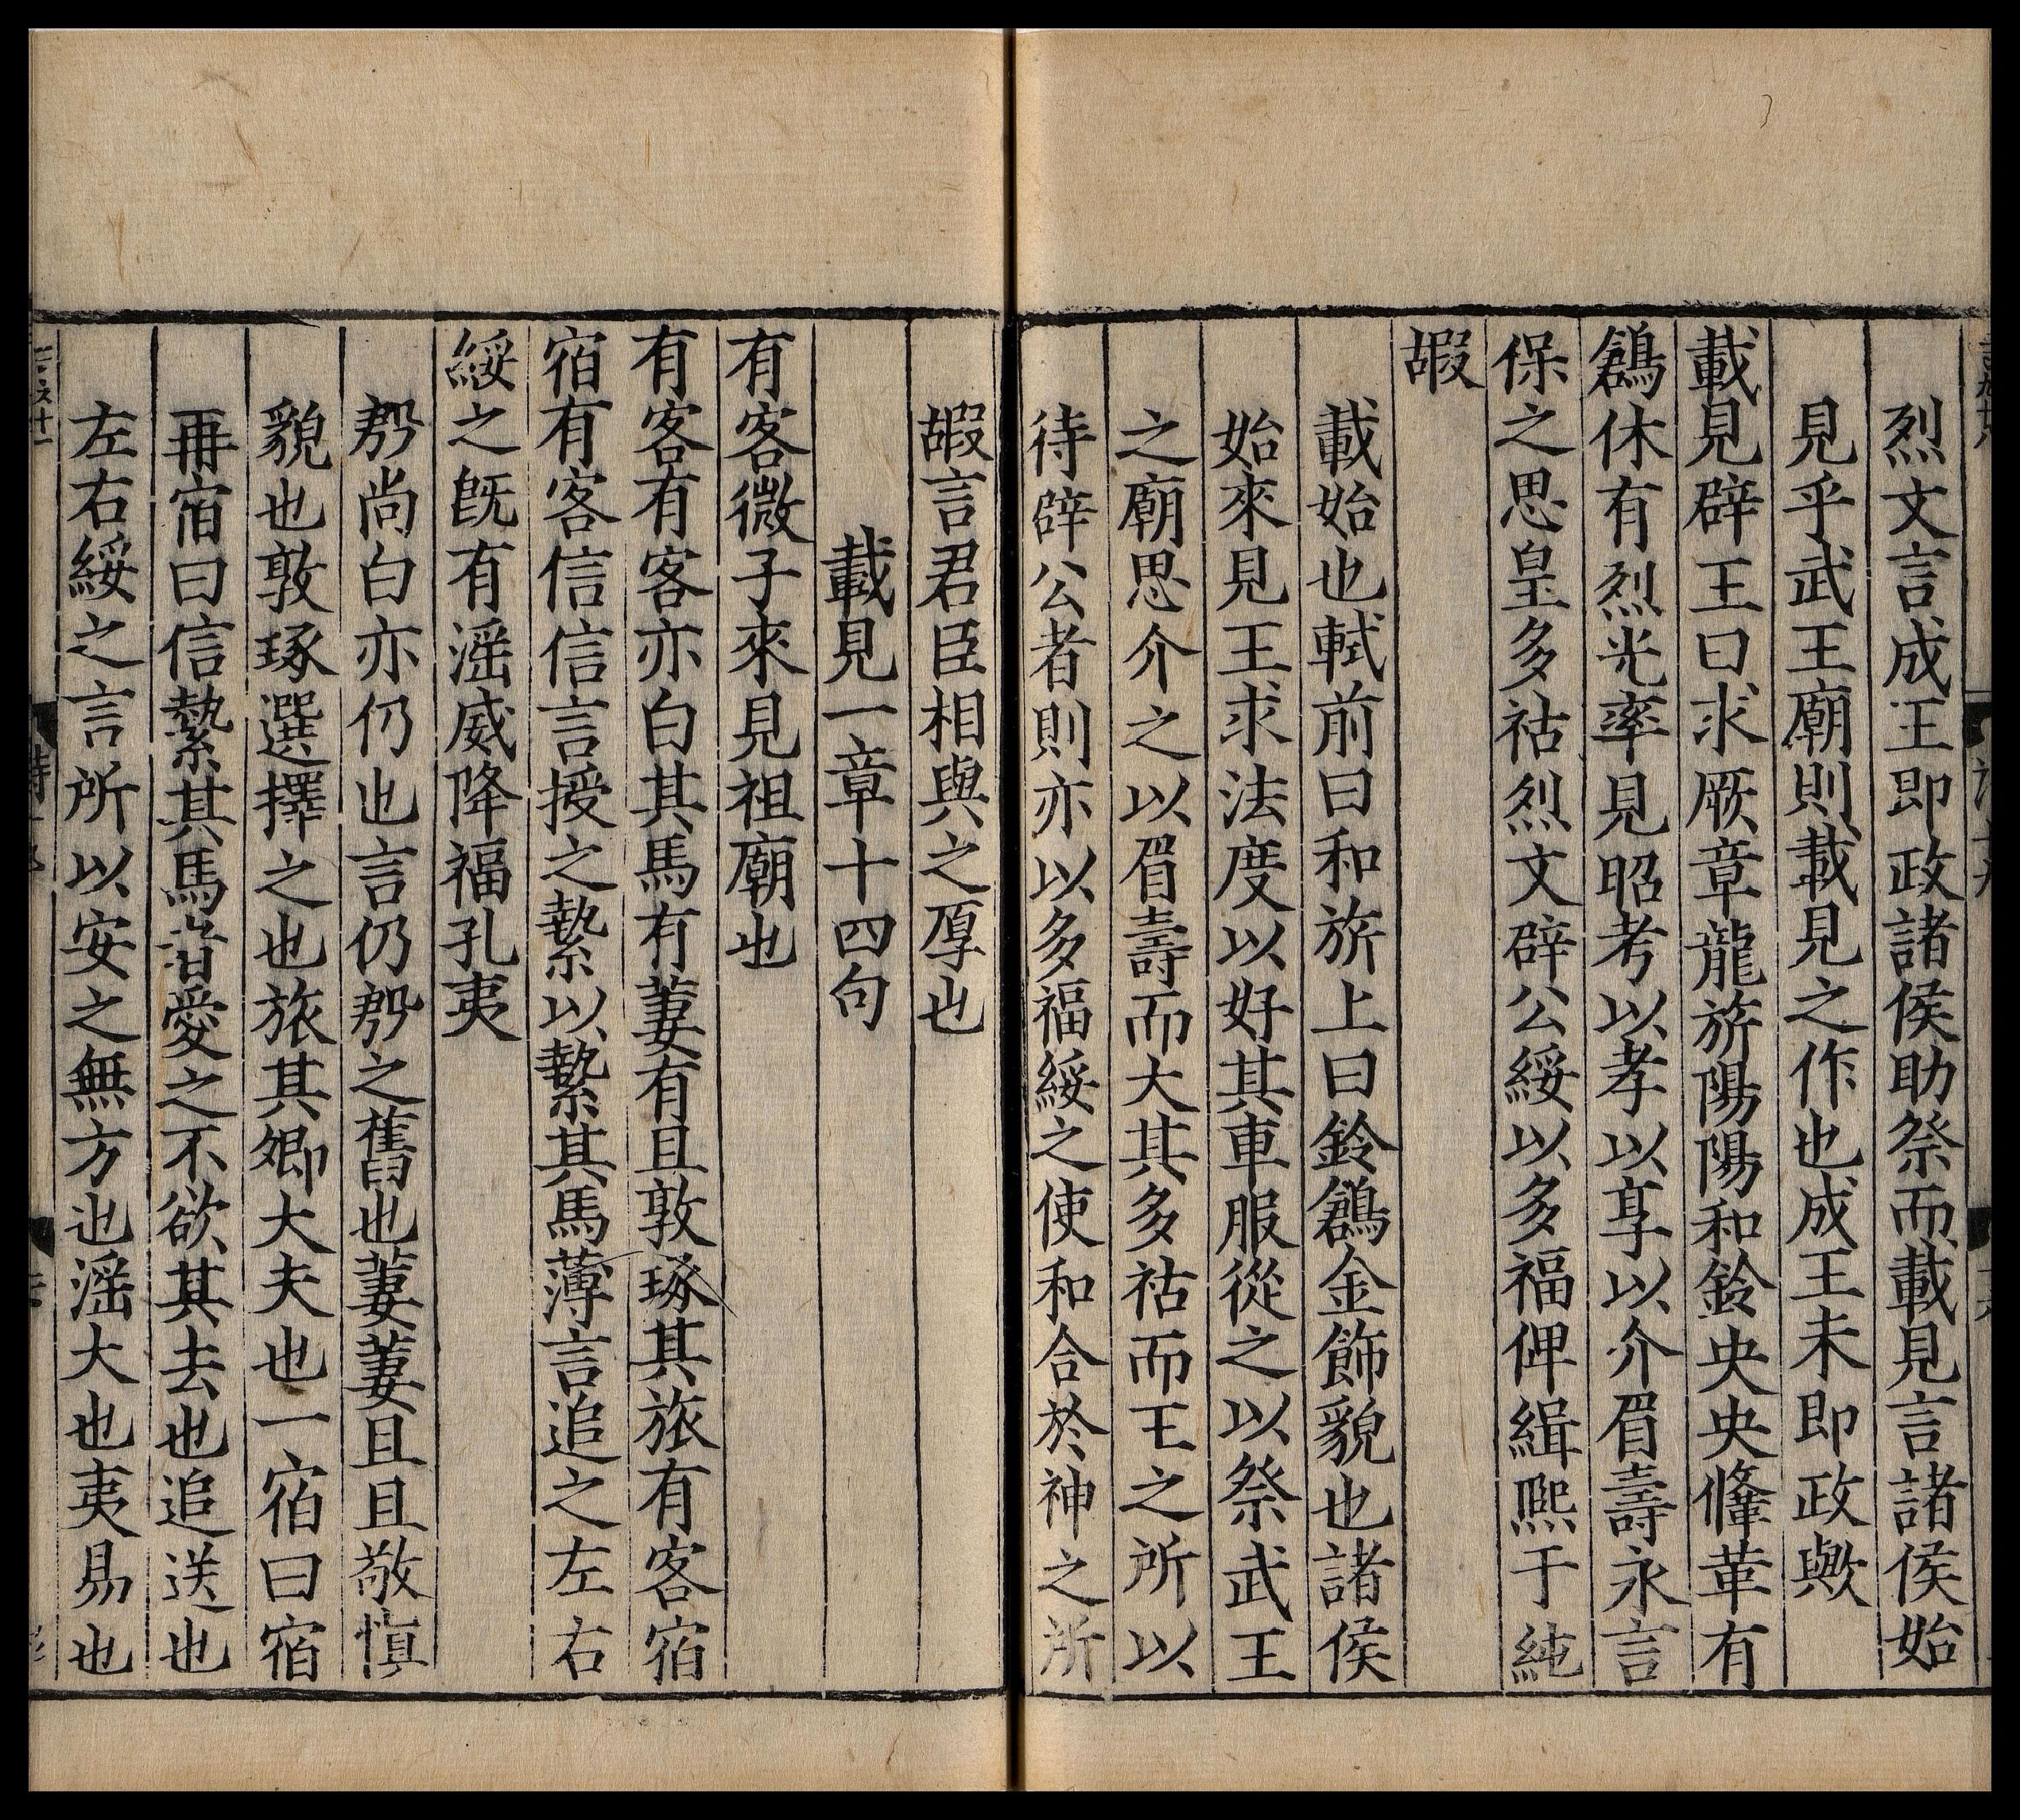 烈文言成王即政諸侯助祭而載見言諸侯始
見乎武王廟則載見之作也成王未即政歟
載見辟王曰求厥章龍旂陽陽和鈴央央鞗革有
鶬休有烈光率見昭考以孝以享以介眉壽永言
保之思皇多祜烈文辟公綏以多福俾緝熙于純
嘏
載始也軾前曰和旂上曰鈴鶬金飾貌也諸侯
始來見王求法度以好其車服從之以祭武王
之廟思介之以眉壽而大其多祜而王之所以
待辟公者則亦以多福綏之使和合於神之所
嘏言君臣相與之厚也
載見一章十四句
有客微子來見祖廟也
有客有客亦白其馬有萋有且敦琢其旅有客宿
宿有客信信言授之縶以縶其馬薄言追之左右
綏之旣有滛威降福孔夷
殷尚白亦仍也言仍殷之舊也萋萋且且敬愼
貌也敦琢選擇之也旅其卿大夫也一宿曰宿
再宿曰信縶其馬者愛之不欲其去也追送也
左右綏之言所以安之無方也滛大也夷易也